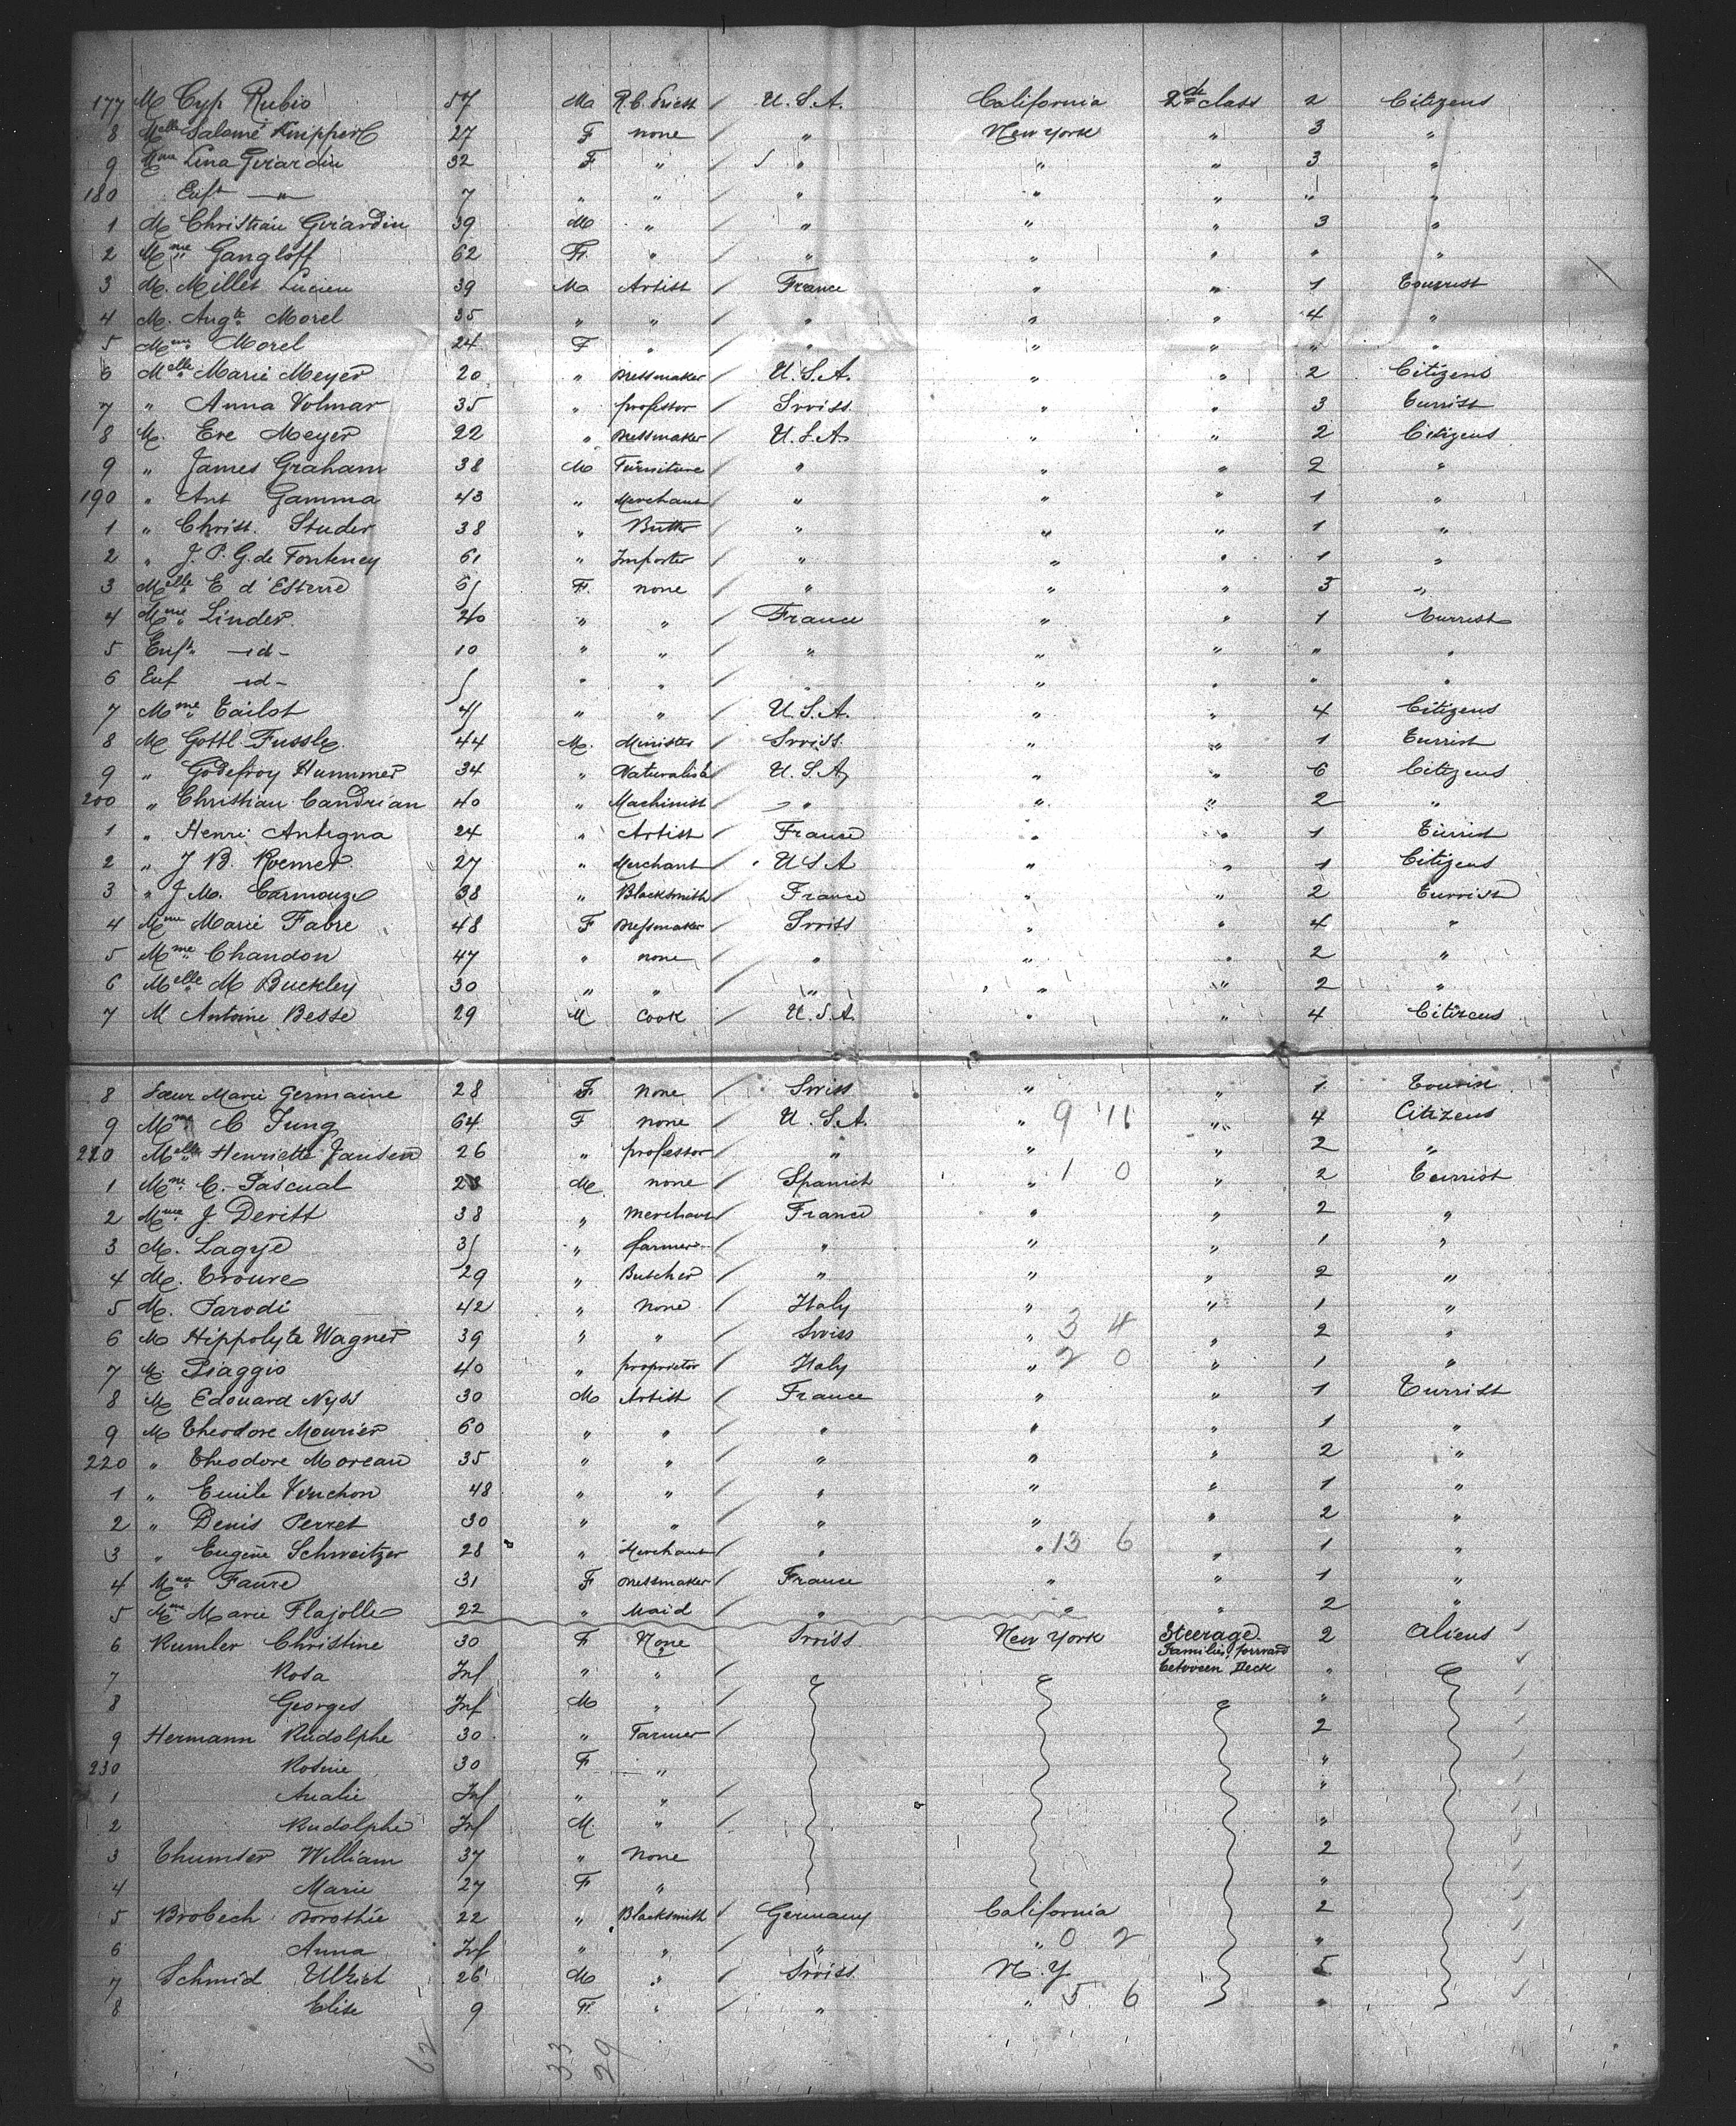 177 M Cyp Rubio 57 Ma R.C. Priest / U.S.A. California 2de class 2 Citizens
8 Melle Salomé Knipperl 27 F none / " New York " 3 "
9 Mme Lina Girardin 32 F " / " " " 3 "
180 Enft —"— 7 " " / " " " " "
1 M Christian Girardin 39 M " / " " " 3 "
2 Mme Gangloff 62 F. " / " " " " "
3 M. Millet Lucien 39 Ma Artist / France " " 1 Tourist
4 M. Augte Morel 35 " " / " " " 4 "
5 Mme Morel 24 F " / " " " " "
6 Melle Marie Meyer 20 " Dressmaker / U.S.A. " " 2 Citizens
7 " Anna Volmar 35 " professor / Swiss " " 3 Turrist
8 M. Eve Meyer 22 " Dressmaker / U.S.A " " 2 Citizens
9 " James Graham 38 M Furniture / " " " 2 "
190 " Ant Gamma 43 " Merchant / " " " 1 "
1 " Christ. Studer 38 " / " " " 1 "
2 " J. P. G. de Fonteney 61 " Importer / " " " 1 "
3 Melle E d'Esterre 61 F. none / " " " 3 "
4 Mme Linder 40 " " / France " " 1 Turrist
5 Enft. -id- 10 " " / " " " " "
6 Enf -id- " " / " " " " "
7 Mme Tailot 41 " " / U.S.A. " " 4 Citizens
8 M Gottl. Fussle 44 M. Minister / Swiss. " " 1 Turrist
9 " Godefroy Hummer 34 " Naturalist / U.S.A " " 6 Citizens
200 " Christian Candrian 40 " Machinist / " " " 2 "
1 " Henri Antigna 24 " Artist / France " " 1 Turrist
2 " J B. Roemer 27 " Merchant / U S A " " 1 Citizens
3 " J M. Carmouze 38 " Blacksmith / France " " 2 Turrist
4 Mme Marie Fabre 48 F Dressmaker / Swiss " " 4 "
5 Mme Chandon 47 " none / " " " 2 "
6 Melle M Buckley 30 " " / " " " 2 "
7 M Antoine Besse 29 M Cook / U.S.A. " " 4 Citizens
8 Sœur Marie Germaine 28 F none / Swiss " " 1 Tourist
9 Mme C Jung 64 F none / U.S.A. " 9 11 " 4 Citizens
210 Melle Henriette Jansen 26 " professor / " " " 2 "
1 Mme C. Pascual 28 M none / Spanish " 1 0 " 2 Turrist
2 Mme J Deritt 38 " Merchant / France " " 2 "
3 M. Lagye 31 " farmer / " " " 1 "
4 M. Trouve 29 " Butcher / " " " 2 "
5 M. Parodi 42 " none / Italy " " 1 "
6 M Hippolyte Wagner 39 " " / Swiss " 3 4 " 2 "
7 M. Piaggio 40 " proprietor / Italy " 2 0 " 1 "
8 M Edouard Nyss 30 M Artist / France " " 1 Turrist
9 M Theodore Mourier 60 " " / " " " 1 "
220 " Theodore Moreau 35 " " / " " " 2 "
1 " Emile Vernchon 48 " " / " " " 1 "
2 " Denis Perret 30 " " / " " " 2 "
3 " Eugène Schweitzer 28 " Merchant / " " 13 6 " 1 "
4 Mme Faure 31 F Dressmaker / France " " 1 "
5 Mme Marie Flajolle 22 " Maid / " " " 2 "
6 Rumler Christine 30 F None / Swiss New York Steerage. 2 Aliens
Families forward
7 Rosa Inf " " / between Deck "
8 Georges Inf M " / "
9 Hermann Rudolphe 30 " Farmer / 2
230 Rosine 30 F " / "
1 Analie Inf " " / "
2 Rudolphe Inf M. " / "
3 Thumser William 37 " None / 2
4 Marie 27 F " / "
5 Brobech Dorothie 22 " Blacksmith / Germany California 2
6 Anna Inf " " / " " 0 2 "
7 Schmid Ulrich 26 M " / Swiss N. Y 5
8 Elise 9 F. " / " " 5 6 "
62 33 29